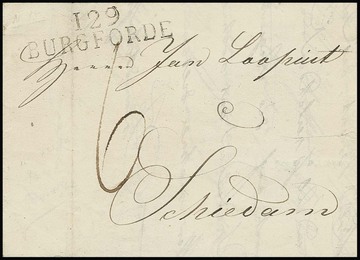 129
BURGFORDE
Herrn Jan Loopuit
6
Schiedam